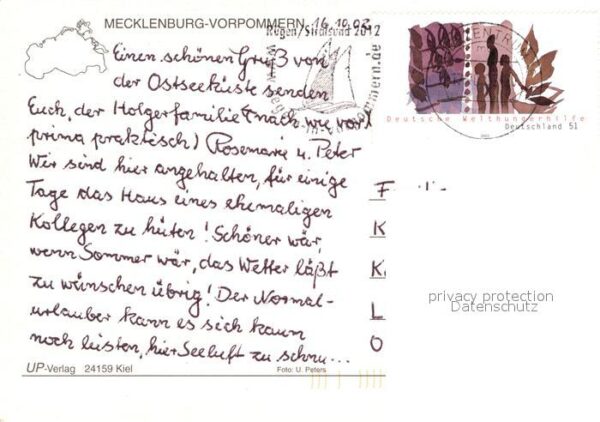 MECKLENBURG-VORPOMMERN
16.10.02
Rügen/Stralsund 2012
Einen schönen Gruß von
der Ostseeküste senden
Euch, der Holgerfamilie (nach wie vor
prima praktisch) Rosemarie u. Peter
Wir sind hier angehalten, für einige
Tage das Haus eines ehemaligen
Kollegen zu hüten! Schöner wär,
wenn Sommer wär, das Wetter läßt
zu wünschen übrig! Der Normal-
urlauber kann es sich kaum
noch leisten, hier Seeluft zu schnu...
UP-Verlag 24159 Kiel
Foto: U. Peters
Deutsche Welthungerhilfe
Deutschland 51
F
K
K
L
O
privacy protection
Datenschutz